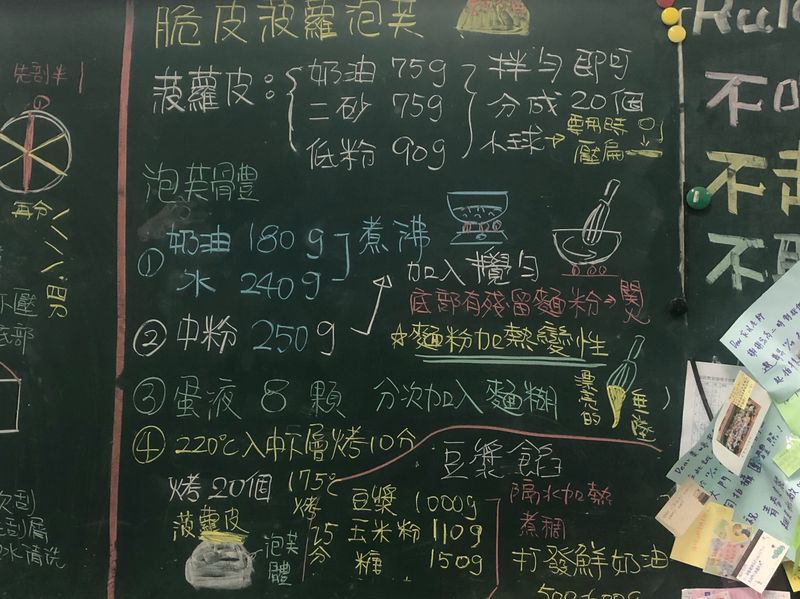 脆皮菠蘿泡芙
菠蘿皮：
奶油 75g
二砂 75g
低粉 90g
拌勻即可
分成20個
小球→要用時
壓扁
泡芙體
①奶油 180g
水 240g
煮沸
②中粉 250g
加入攪勻
底部有殘留麵粉→關
☆麵粉加熱變性
③蛋液 8 顆 分次加入麵糊
漂亮的
④220℃入中下層烤10分
175℃
烤
25
分
烤20個
菠蘿皮
泡芙
體
豆漿餡
豆漿 1000g
玉米粉 110g
糖 150g
隔水加熱
煮稠
打發鮮奶油
先剖半
①
再分
四分
不壓
底部
次刮
刮屑
水清洗
Rul
不
不
不